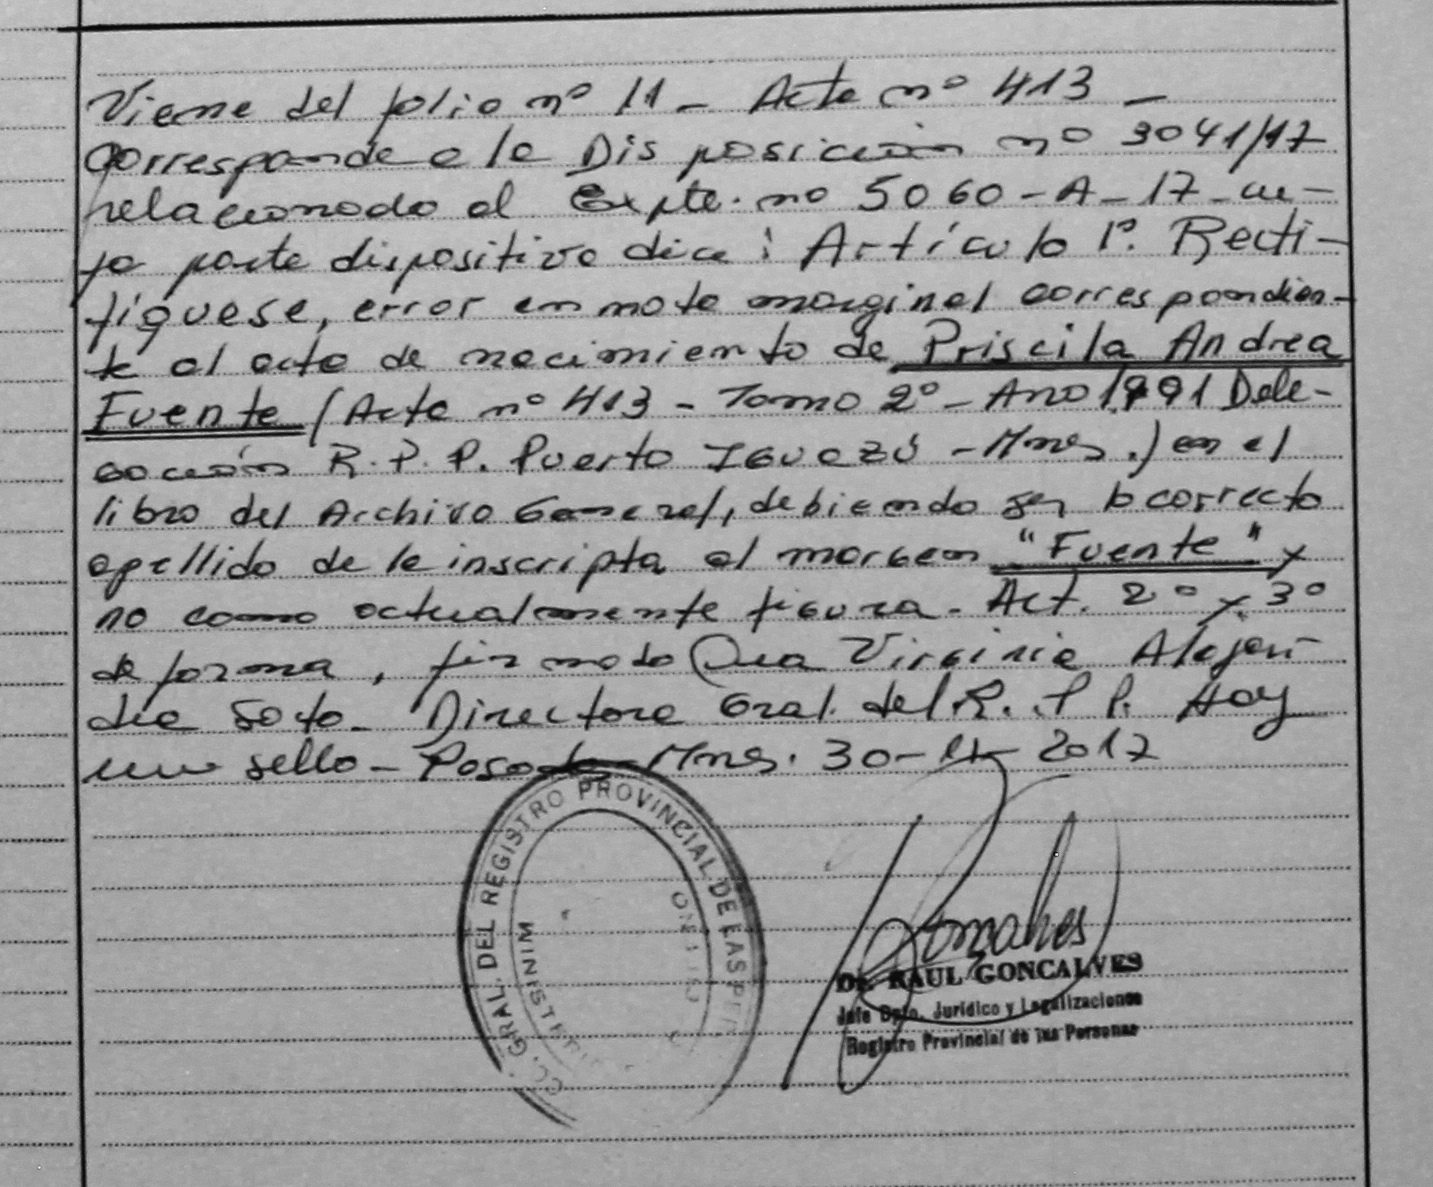 Viene del folio nº 11 - Acta nº 413 -
Corresponde a la Disposición nº 3041/17
relacionado al Expte. nº 5060-A-17-cu-
ya parte dispositiva dice: Artículo 1º. Recti-
fíquese, error en nota marginal correspondien-
te al acta de nacimiento de Priscila Andrea
Fuente (Acta nº 413 - Tomo 2º - Año 1991 Dele-
gación R.P.P. Puerto Iguazú - Mnes.) en el
libro del Archivo General, debiendo ser lo correcto
apellido de la inscripta al margen "Fuente" y
no como actualmente figura. Art. 2º y 3º
de forma, firmado Dra Virginia Alejan-
dra Soto. Directora Gral. del R.P.P. Hay
un sello - Posadas Mnes. 30- 2017
GRAL. DEL REGISTRO PROVINCIAL DE LAS PER
MINISTERIO
Goncalves
Dr. RAUL GONCALVES
Jefe Dpto. Jurídico y Legalizaciones
Registro Provincial de las Personas